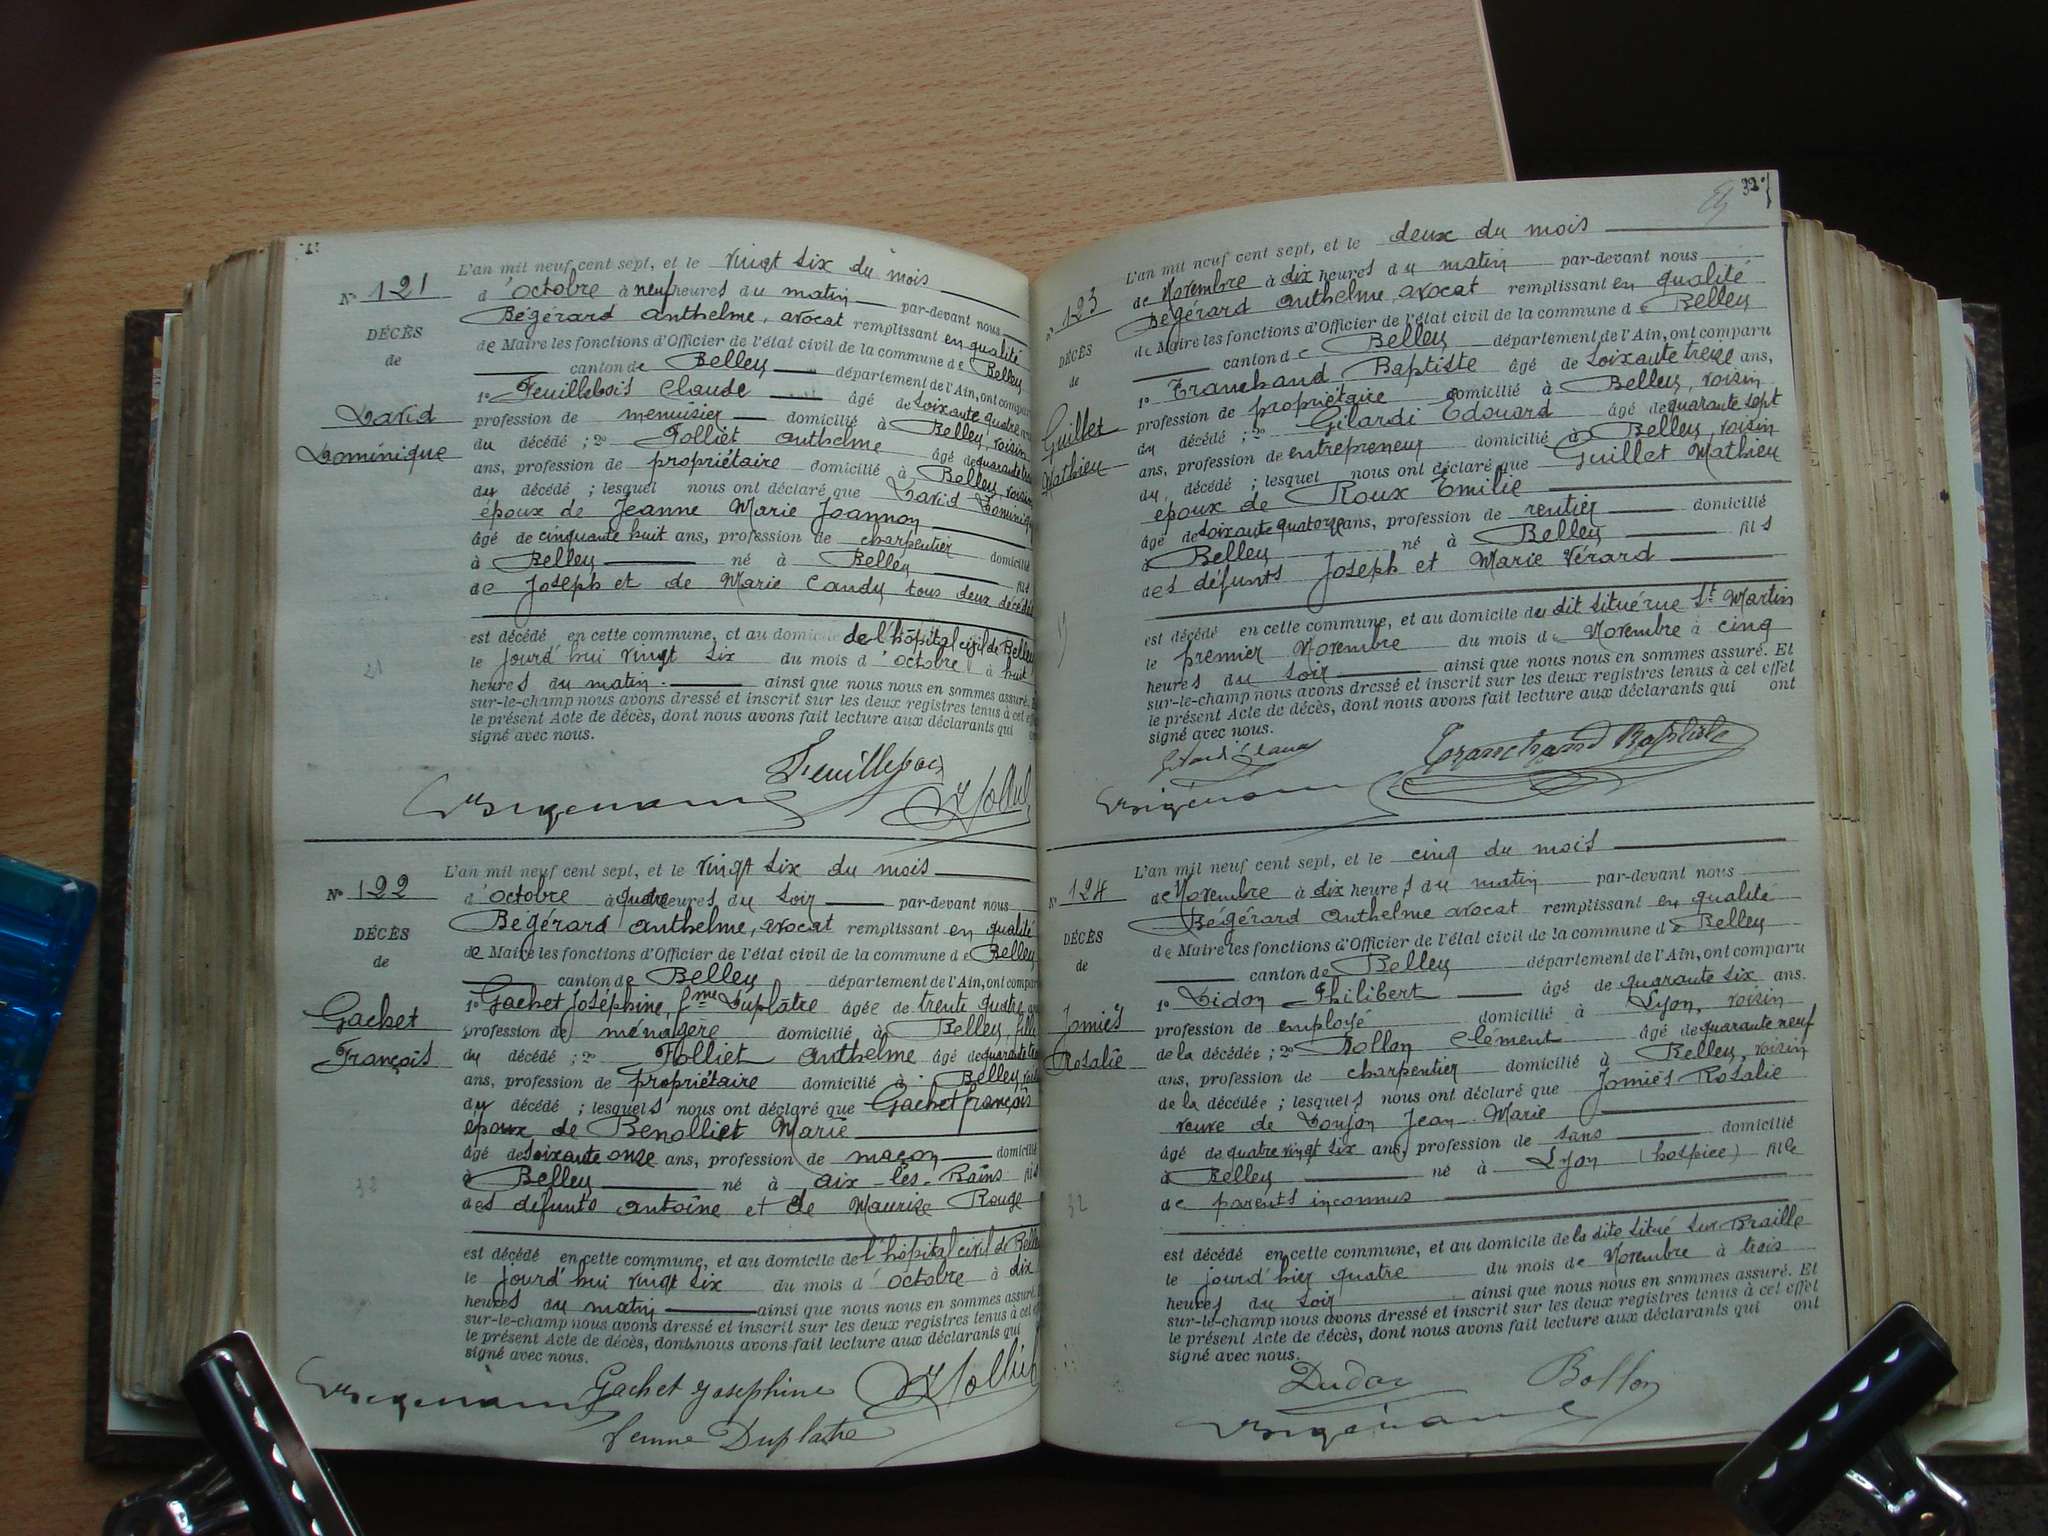 N° 121
DÉCÈS
de
David
Dominique
L'an mil neuf cent sept, et le vingt six du mois
d'octobre à neuf heures du matin par-devant nous
Bégérard Anthelme, avocat remplissant en qualité
de Maire les fonctions d'Officier de l'état civil de la commune de Belley
canton de Belley département de l'Ain, ont compar
1° Feuillebois Claude âgé de soixante quatre
profession de menuisier domicilié à Belley, voisin
du décédé ; 2° Folliet Anthelme âgé de quarante
ans, profession de propriétaire domicilié à Belley, voisin
du décédé ; lesquel nous ont déclaré que David Dominiq
époux de Jeanne Marie Joannon
âgé de cinquante huit ans, profession de charpentier domicilié
à Belley né à Belley fils
de Joseph et de Marie Candy tous deux décédés
est décédé en cette commune, et au domicile de l'hôpital civil de Belley
le jourd'hui vingt six du mois d'octobre à huit
heures du matin. ainsi que nous nous en sommes assuré.
sur-le-champ nous avons dressé et inscrit sur les deux registres tenus à cet
le présent Acte de décès, dont nous avons fait lecture aux déclarants qui
signé avec nous.
Feuillebois
N° 122
DÉCÈS
de
Gachet
François
L'an mil neuf cent sept, et le vingt six du mois
d'octobre à quatre heures du soir par-devant nous
Bégérard Anthelme, avocat remplissant en qualité
de Maire les fonctions d'Officier de l'état civil de la commune de Belley
canton de Belley département de l'Ain, ont compar
1° Gachet Joséphine, fme Duplâtre âgée de trente quatre
profession de ménagère domicilié à Belley, fille
du décédé ; 2° Folliet Anthelme âgé de quarante
ans, profession de propriétaire domicilié à Belley, voisin
du décédé ; lesquels nous ont déclaré que Gachet françois
époux de Benolliet Marie
âgé de soixante onze ans, profession de maçon domicilié
à Belley né à Aix-les-Bains fils
des défunts Antoine et de Maurize Rouge
est décédé en cette commune, et au domicile de l'hôpital civil de Belle
le jourd'hui vingt six du mois d'octobre à dix
heures du matin ainsi que nous nous en sommes assuré.
sur-le-champ nous avons dressé et inscrit sur les deux registres tenus à cet
le présent Acte de décès, dont nous avons fait lecture aux déclarants qui
signé avec nous.
Gachet Josephine
femme Duplatre
32
N° 123
DÉCÈS
de
Guillet
Mathieu
L'an mil neuf cent sept, et le deux du mois
de Novembre à dix heures du matin par-devant nous
Bégérard Anthelme, avocat remplissant en qualité
de Maire les fonctions d'Officier de l'état civil de la commune de Belley
canton de Belley département de l'Ain, ont comparu
1° Tranchand, Baptiste âgé de soixante treize ans,
profession de propriétaire domicilié à Belley, voisin
du décédé ; 2° Gilardi Edouard âgé de quarante sept
ans, profession de entrepreneur domicilié à Belley, voisin
du décédé ; lesquel nous ont déclaré que Guillet Mathieu
époux de Roux Emilie
âgé de soixante quatorze ans, profession de rentier domicilié
à Belley né à Belley fils
des défunts Joseph et Marie Vérard
est décédé en cette commune, et au domicile du dit situé rue St Martin
le premier Novembre du mois de Novembre à cinq
heures du soir ainsi que nous nous en sommes assuré. Et
sur-le-champ nous avons dressé et inscrit sur les deux registres tenus à cet effet
le présent Acte de décès, dont nous avons fait lecture aux déclarants qui ont
signé avec nous.
Tranchand Baptiste
N° 124
DÉCÈS
de
Jomiès
Rosalie
L'an mil neuf cent sept, et le cinq du mois
de Novembre à dix heures du matin par-devant nous
Bégérard Anthelme avocat remplissant en qualité
de Maire les fonctions d'Officier de l'état civil de la commune de Belley
canton de Belley département de l'Ain, ont comparu
1° Didon Philibert âgé de quarante six ans.
profession de employé domicilié à Lyon, voisin
de la décédée ; 2° Bollon Clément âgé de quarante neuf
ans, profession de charpentier domicilié à Belley, voisin
de la décédée ; lesquels nous ont déclaré que Jomiès Rosalie
veuve de Doujon Jean-Marie
âgé de quatre vingt six ans, profession de sans domicilié
à Belley né à Lyon (hospice) fille
de parents inconnus
est décédé en cette commune, et au domicile de la dite situé sur Braille
le jourd'hier quatre du mois de Novembre à trois
heures du soir ainsi que nous nous en sommes assuré. Et
sur-le-champ nous avons dressé et inscrit sur les deux registres tenus à cet effet
le présent Acte de décès, dont nous avons fait lecture aux déclarants qui ont
signé avec nous.
Bollon